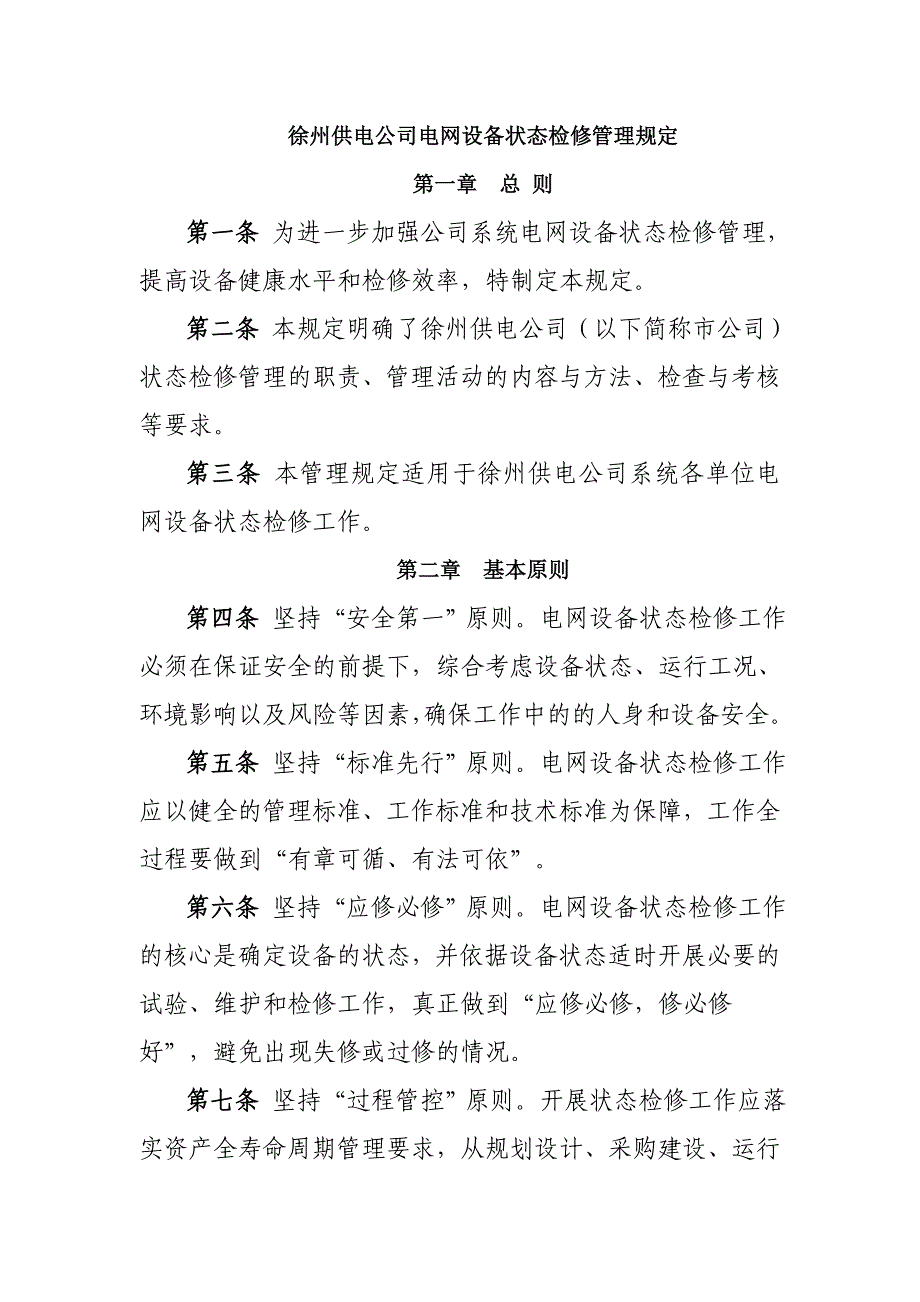 徐州供电公司电网设备状态检修管理规定
第一章 总 则
第一条 为进一步加强公司系统电网设备状态检修管理，
提高设备健康水平和检修效率，特制定本规定。
第二条 本规定明确了徐州供电公司（以下简称市公司）
状态检修管理的职责、管理活动的内容与方法、检查与考核
等要求。
第三条 本管理规定适用于徐州供电公司系统各单位电
网设备状态检修工作。
第二章 基本原则
第四条 坚持“安全第一”原则。电网设备状态检修工作
必须在保证安全的前提下，综合考虑设备状态、运行工况、
环境影响以及风险等因素，确保工作中的的人身和设备安全。
第五条 坚持“标准先行”原则。电网设备状态检修工作
应以健全的管理标准、工作标准和技术标准为保障，工作全
过程要做到“有章可循、有法可依”。
第六条 坚持“应修必修”原则。电网设备状态检修工作
的核心是确定设备的状态，并依据设备状态适时开展必要的
试验、维护和检修工作，真正做到“应修必修，修必修
好”，避免出现失修或过修的情况。
第七条 坚持“过程管控”原则。开展状态检修工作应落
实资产全寿命周期管理要求，从规划设计、采购建设、运行